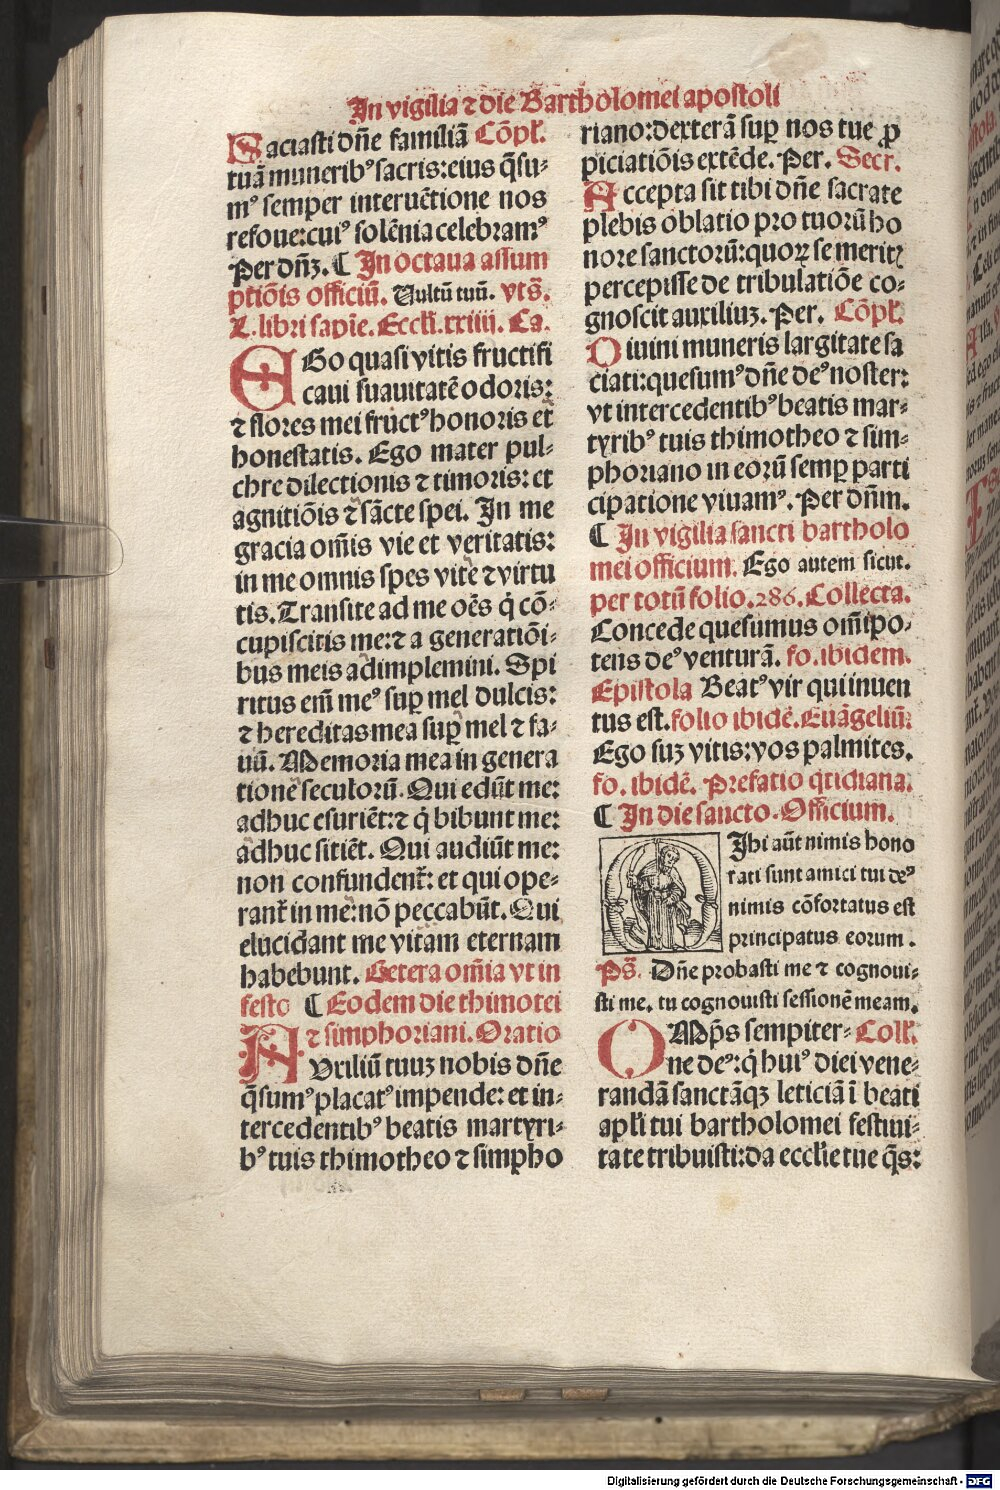 In vigilia ⁊ die Bartholomei apostoli
Saciasti dñe familiã Cõpl̃.
tuã muneribꝰ sacris: eius q̃su⸗
mꝰ semper interuẽtione nos
refoue: cuiꝰ solẽnia celebramꝰ
Per dñʒ. ¶ In octaua assum
ptiõis officiũ. Vultũ tuũ. vts̃.
L. libri sapiẽ. Eccl̃i. xxiiij. Ca.
EGo quasi vitis fructifi
caui suauitatẽ odoris:
⁊ flores mei fructꝰ honoris et
honestatis. Ego mater pul⸗
chre dilectionis ⁊ timoris: et
agnitiõis ⁊ sãcte spei. In me
gracia om̃is vie et veritatis:
in me omnis spes vite ⁊ virtu
tis. Transite ad me oẽs q̃ cõ⸗
cupiscitis me: ⁊ a generatiõi⸗
bus meis adimplemini. Spi
ritus em̃ meꝰ suꝑ mel dulcis:
⁊ hereditas mea suꝑ mel ⁊ fa⸗
uũ. Memoria mea in genera
tione seculorũ. Qui edũt me:
adhuc esuriẽt: ⁊ q̃ bibunt me:
adhuc sitiẽt. Qui audiũt me:
non confundent̃: et qui ope⸗
rant̃ in me: nõ peccabũt. Qui
elucidant me vitam eternam
habebunt. Cetera om̃ia vt in
festo ¶ Eodem die thimotei
⁊ simphoriani. Oratio
AVxiliũ tuuʒ nobis dñe
q̃sumꝰ placatꝰ impende: et in⸗
tercedentibꝰ beatis martyri⸗
bꝰ tuis thimotheo ⁊ simpho
riano: dexterã suꝑ nos tue ꝓ
piciatiõis extẽde. Per. Secr.
Accepta sit tibi dñe sacrate
plebis oblatio pro tuorũ ho
nore sanctorũ: quoꝝ se meritꝭ
percepisse de tribulatiõe co⸗
gnoscit auxiliuʒ. Per. Cõpl̃.
Diuini muneris largitate sa
ciati: quesumꝰ dñe deꝰ noster:
vt intercedentibꝰ beatis mar⸗
tyribꝰ tuis thimotheo ⁊ sim⸗
phoriano in eorũ semꝑ parti
cipatione viuamꝰ. Per dñm.
¶ In vigilia sancti bartholo
mei officium. Ego autem sicut.
per totũ folio. 286. Collecta.
Concede quesumus om̃ipo⸗
tens deꝰ venturã. fo. ibidem.
Epistola Beatꝰ vir qui inuen
tus est. folio ibidẽ. Euãgeliũ:
Ego suʒ vitis: vos palmites.
fo. ibidẽ. Prefatio q̃tidiana.
¶ In die sancto. Officium.
MIhi aũt nimis hono
rati sunt amici tui deꝰ
nimis cõfortatus est
principatus eorum.
Ps̃. Dñe probasti me ⁊ cognoui⸗
sti me. tu cognouisti sessionẽ meam.
OMp̃s sempiter⸗ Coll̃.
ne deꝰ: q̃ huiꝰ diei vene⸗
randã sanctãqʒ leticiã ĩ beati
apl̃i tui bartholomei festiui⸗
tate tribuisti: da eccl̃ie tue q̃s:
Digitalisierung gefördert durch die Deutsche Forschungsgemeinschaft - DFG